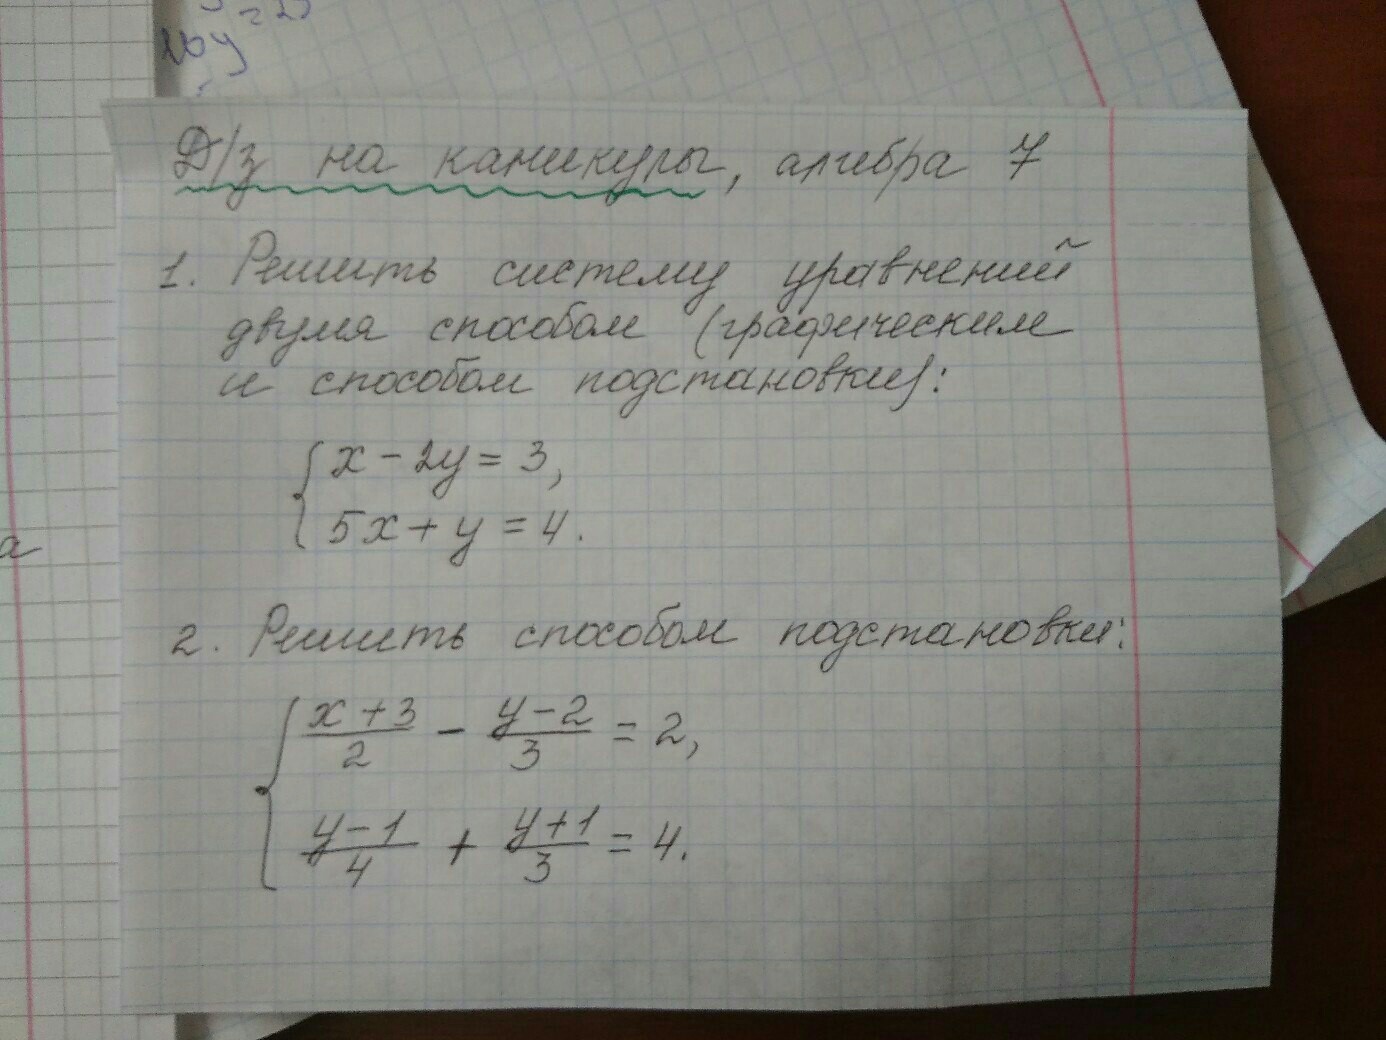 Д/з на каникулы, алгебра 7
1. Решить систему уравнений
двумя способом (графическим
и способом подстановки):
x - 2y = 3,
5x + y = 4.
2. Решить способом подстановки:
(x + 3)/2 - (y - 2)/3 = 2,
(y - 1)/4 + (y + 1)/3 = 4.